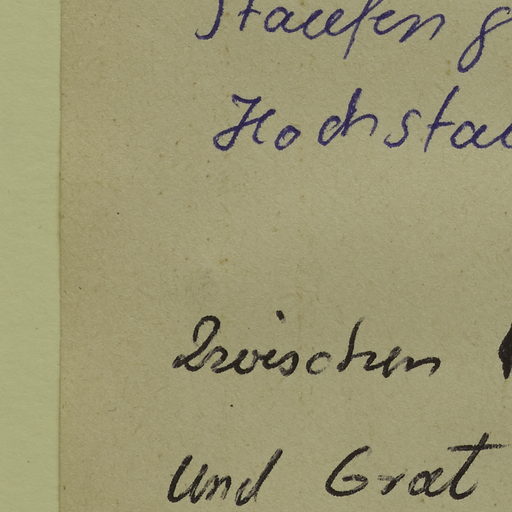 Staufen g
Hochstau
Zwischen
und Grat